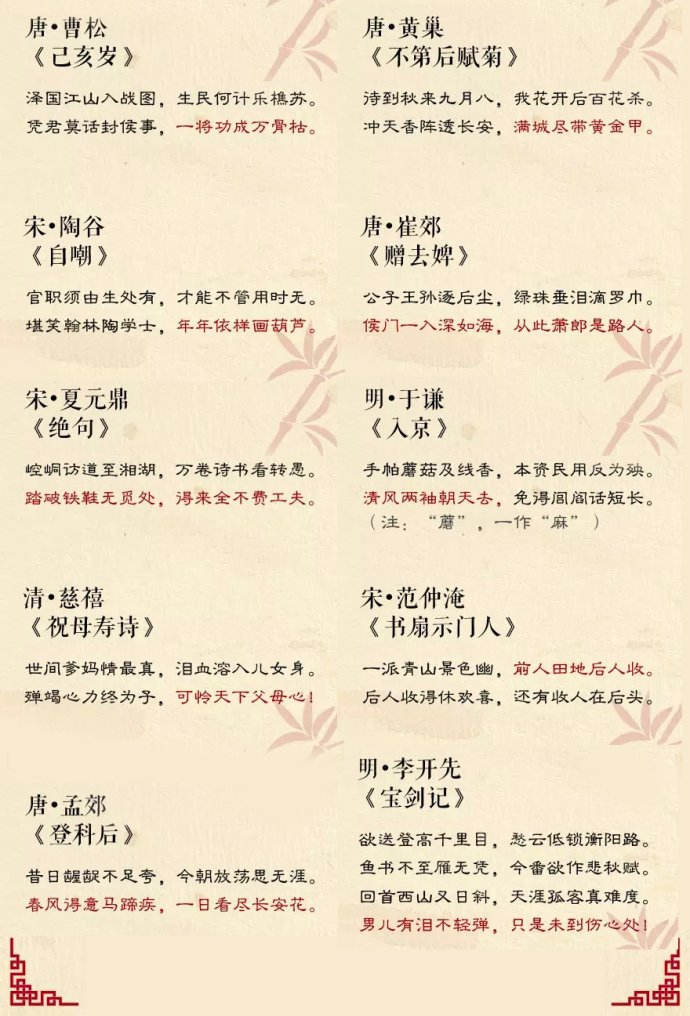 唐•曹松
《己亥岁》
泽国江山入战图，生民何计乐樵苏。
凭君莫话封侯事，一将功成万骨枯。
唐•黄巢
《不第后赋菊》
待到秋来九月八，我花开后百花杀。
冲天香阵透长安，满城尽带黄金甲。
宋•陶谷
《自嘲》
官职须由生处有，才能不管用时无。
堪笑翰林陶学士，年年依样画葫芦。
唐•崔郊
《赠去婢》
公子王孙逐后尘，绿珠垂泪滴罗巾。
侯门一入深如海，从此萧郎是路人。
宋•夏元鼎
《绝句》
崆峒访道至湘湖，万卷诗书看转愚。
踏破铁鞋无觅处，得来全不费工夫。
明•于谦
《入京》
手帕蘑菇及线香，本资民用反为殃。
清风两袖朝天去，免得闾阎话短长。
（注：“蘑”，一作“麻”）
清•慈禧
《祝母寿诗》
世间爹妈情最真，泪血溶入儿女身。
殚竭心力终为子，可怜天下父母心！
宋•范仲淹
《书扇示门人》
一派青山景色幽，前人田地后人收。
后人收得休欢喜，还有收人在后头。
唐•孟郊
《登科后》
昔日龌龊不足夸，今朝放荡思无涯。
春风得意马蹄疾，一日看尽长安花。
明•李开先
《宝剑记》
欲送登高千里目，愁云低锁衡阳路。
鱼书不至雁无凭，今番欲作悲秋赋。
回首西山又日斜，天涯孤客真难度。
男儿有泪不轻弹，只是未到伤心处！